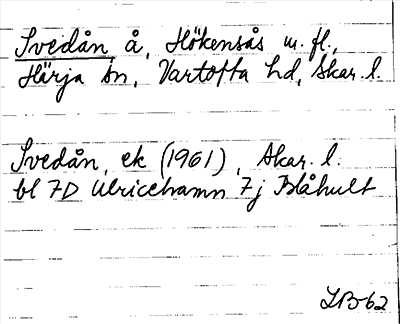 Svedån å, Hökensås m. fl.,
Härja sn, Vartofta hd, Skar. l.
Svedån, ek (1961), Skar. l.
bl 7D Ulricehamn 7j Blåhult
LB-62